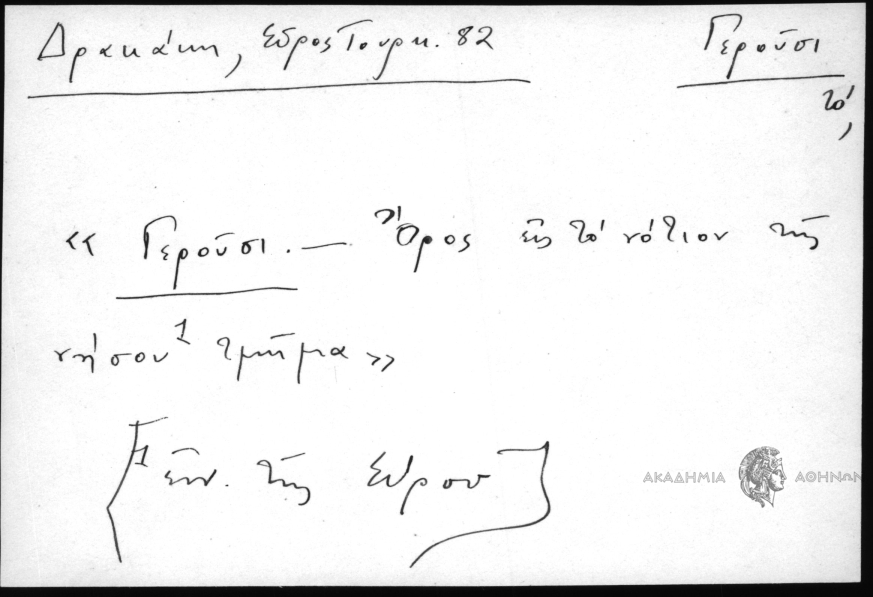 Δρακάκη, Σῦρος Τουρκ. 82
Γεροῦσι
τό,
« Γεροῦσι. — Ὄρος εἰς τό νότιον τῆς
νήσου¹ τμῆμα »
[¹ ἐνν. τῆς Σύρου]
ΑΚΑΔΗΜΙΑ ΑΘΗΝΩΝ